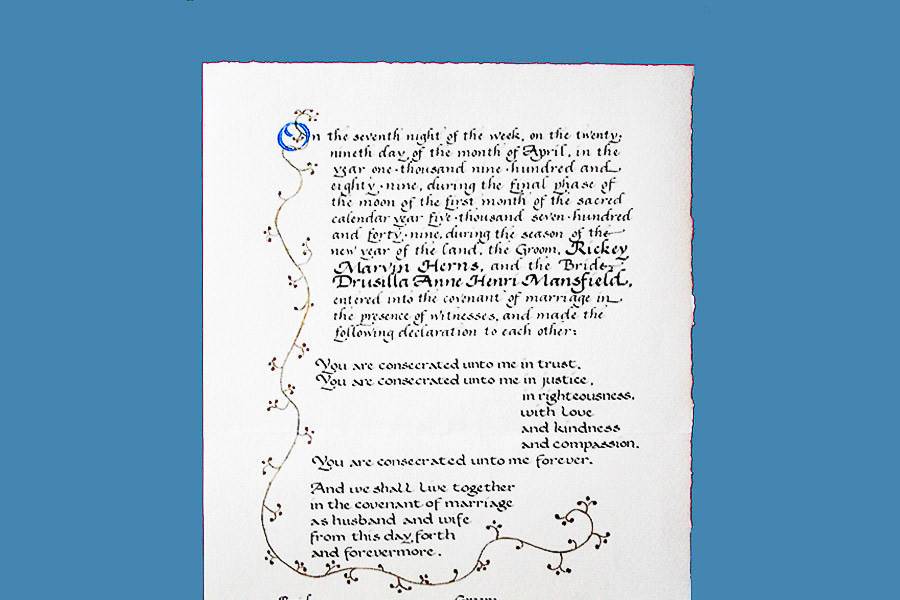 On the seventh night of the week, on the twenty-
nineth day of the month of April, in the
year one·thousand nine·hundred and
eighty·nine, during the final phase of
the moon of the first month of the sacred
calendar year five·thousand seven·hundred
and forty·nine, during the season of the
new year of the land, the Groom, Rickey
Marvin Herns, and the Bride,
Drusilla Anne Henri Mansfield,
entered into the covenant of marriage in
the presence of witnesses, and made the
following declaration to each other:
You are consecrated unto me in trust.
You are consecrated unto me in justice,
in righteousness,
with love
and kindness
and compassion.
You are consecrated unto me forever.
And we shall live together
in the covenant of marriage
as husband and wife
from this day forth
and forevermore.